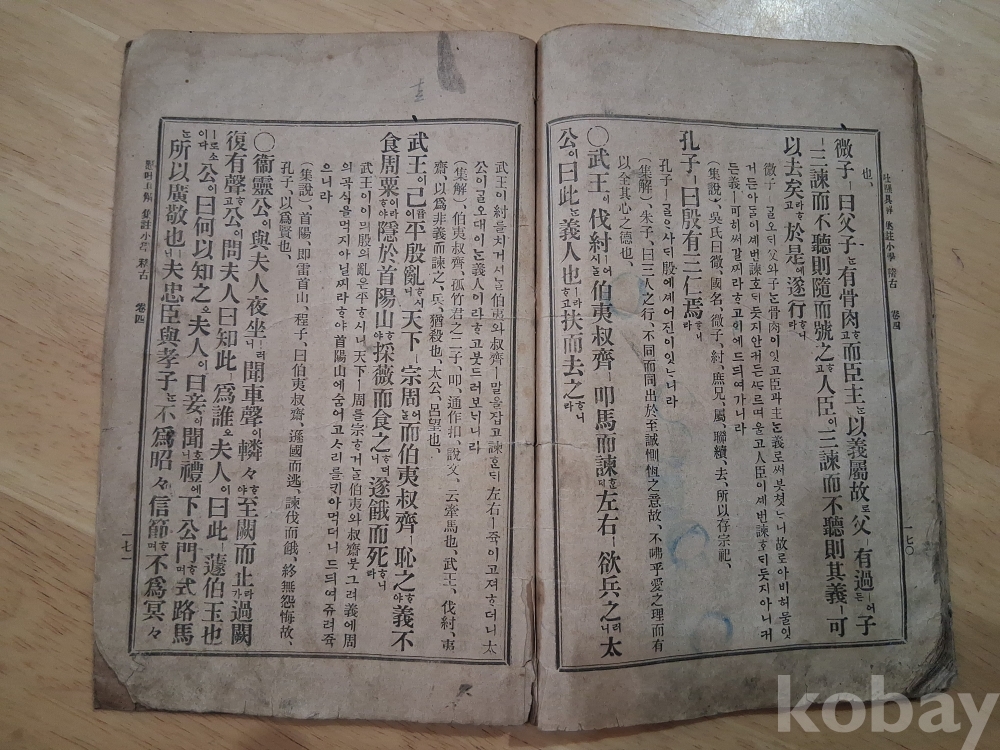 也、
微子ㅣ曰父子ᄂᆞᆫ有骨肉ᄒᆞ고而臣主ᄂᆞᆫ以義屬故로父ㅣ有過ㅣ어든子
ㅣ三諫而不聽則隨而號之ᄒᆞ고人臣이三諫而不聽則其義ㅣ可
以去矣라ᄒᆞ고於是에遂行ᄒᆞ니라
微子ㅣ글오ᄃᆡ父와子ᄂᆞᆫ骨肉이잇고臣과主ᄂᆞᆫ義로써붓쳣ᄂᆞ니故로아비허물잇
거든아들이세번諫호ᄃᆡ듯지안커든ᄯᆞ르며울고人臣이세번諫호ᄃᆡ듯지아니커
든義ㅣ可히써갈찌라ᄒᆞ고이에드듸여가니라
(集說)、吳氏曰微、國名、微子、紂、庶兄、屬、聯續、去、所以存宗祀、
孔子ㅣ曰殷有三仁焉ᄒᆞ니라
孔子ㅣ글ᄋᆞ샤ᄃᆡ殷에세어진이잇ᄂᆞ니라
(集解)、朱子、曰三人之行、不同而同出於至誠惻怛之意故、不咈乎愛之理而有
以全其心之德也、
〇武王이伐紂ㅣ어시ᄂᆞᆯ伯夷叔齊ㅣ叩馬而諫ᄒᆞᆫᄃᆡ左右ㅣ欲兵之러니太
公이曰此ᄂᆞᆫ義人也ㅣ라ᄒᆞ고扶而去之ᄒᆞ니라
集註小學 稽古 卷四 一七〇
武王이紂를치거시ᄂᆞᆯ伯夷와叔齊ㅣ말을잡고諫ᄒᆞᆫᄃᆡ左右ㅣ쥭이고져ᄒᆞ더니太
公이글오ᄃᆡ이ᄂᆞᆫ義人이라ᄒᆞ고붓드러보ᄂᆡ니라
(集解)、伯夷叔齊、孤竹君之二子、叩、通作扣、說文、云牽馬也、武王、伐紂、夷
齊、以爲非義而諫之、兵、猶殺也、太公、呂望也、
武王이已平殷亂ᄒᆞ시니天下ㅣ宗周ㅣ어ᄂᆞᆯ而伯夷叔齊ㅣ恥之ᄒᆞ야義不
食周粟이라ᄒᆞ야隱於首陽山ᄒᆞ야採薇而食之ᄒᆞ더니遂餓而死ᄒᆞ니라
武王이이믜殷의亂은平ᄒᆞ시니天下ㅣ周를宗ᄒᆞ거ᄂᆞᆯ伯夷와叔齊붓그려義에周
의곡식을먹지아닐찌라ᄒᆞ야首陽山에숨어고ᄉᆞ리를ᄏᆡ아먹더니드듸여쥬려쥭
으니라
(集說)、首陽、卽雷首山、程子、曰伯夷叔齊、遜國而逃、諫伐而餓、終無怨悔故、
孔子、以爲賢也、
〇衞靈公이與夫人夜坐ㅣ러니聞車聲이轔々ᄒᆞ야至闕而止라가過闕
復有聲ᄒᆞ고公이問夫人曰知此ㅣ爲誰오夫人이曰此ㅣ蘧伯玉也
ㅣ로소이다公이曰何以知之오夫人이曰妾이聞호니禮에下公門ᄒᆞ며式路馬
ᄂᆞᆫ所以廣敬也ㅣ니夫忠臣與孝子ᄂᆞᆫ不爲昭々信節ᄒᆞ며不爲冥々
懸吐具解 集註小學 稽古 卷四 一七一
kobay